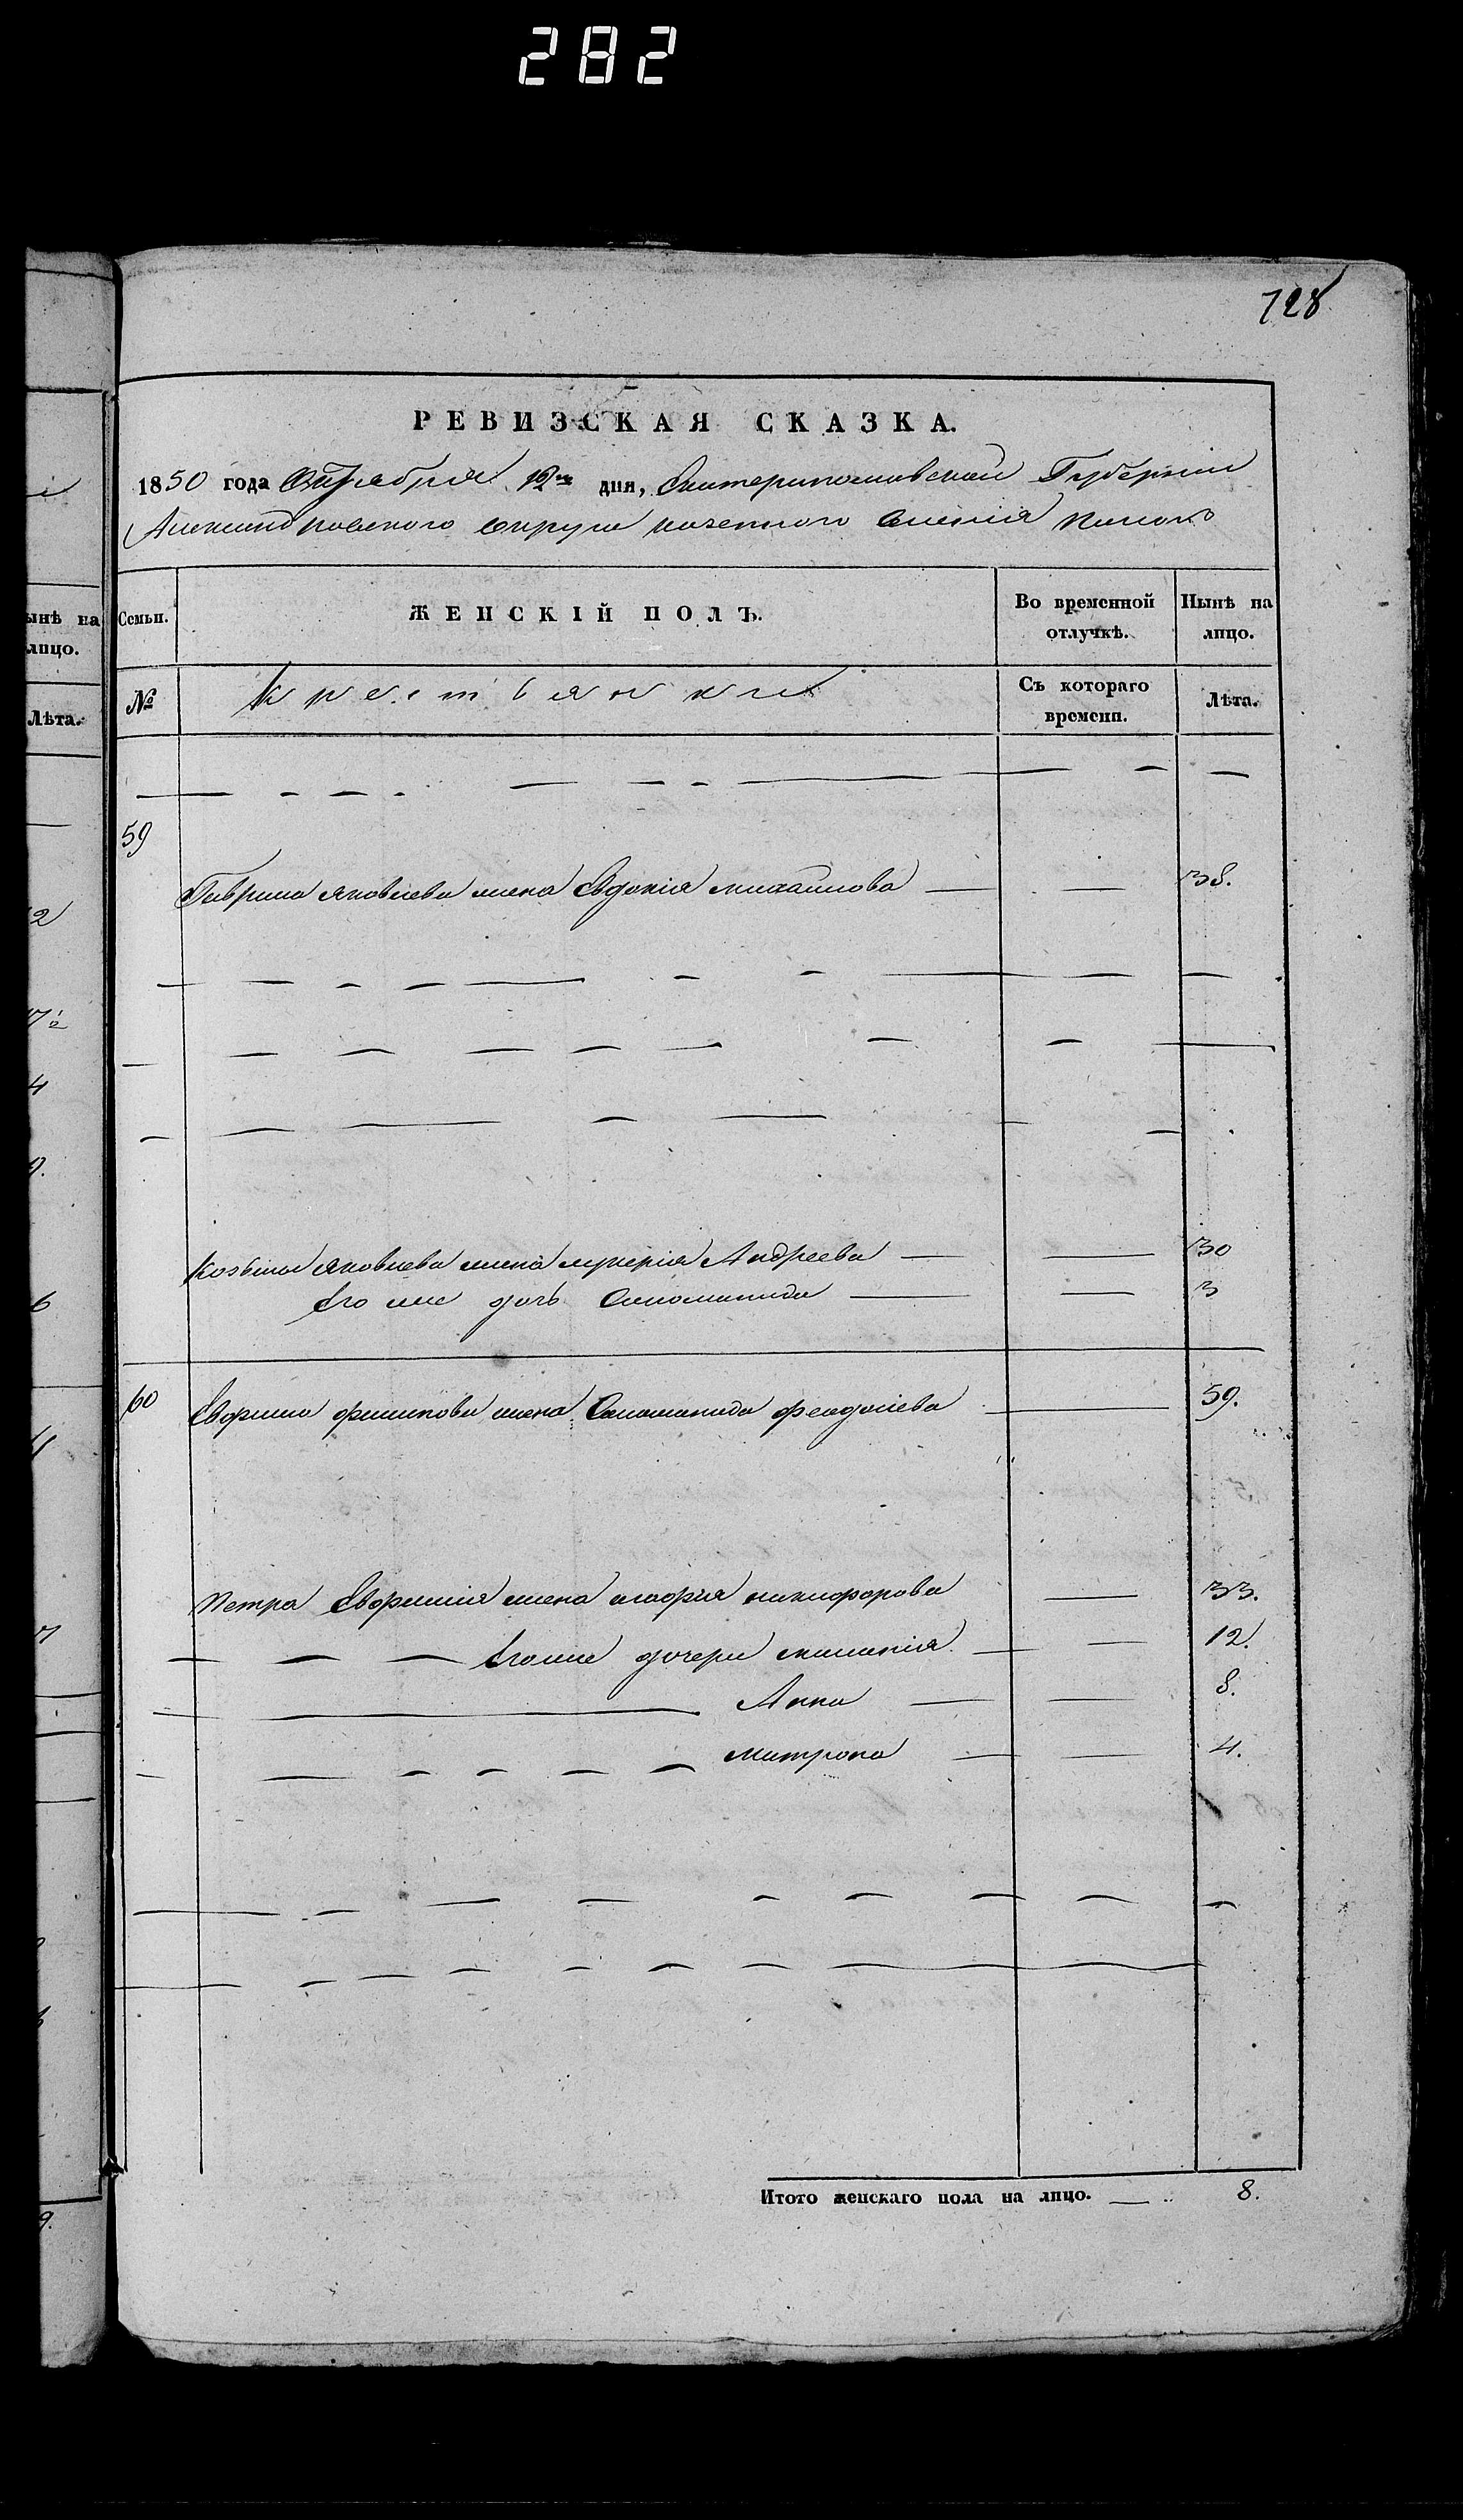 282
728
РЕВИЗСКАЯ СКАЗКА.
1850 года Октября 16го дня, Екатеринославской Губернии
Александровского округа казенного Селения
Семьи. ЖЕНСКІЙ ПОЛЪ. Во временной отлучкѣ. Нынѣ на лицо.
№ крестьянки Съ котораго времени. Лѣта.
59
Гаврила Яковлева жена Евдокія михайлова 38.
Козьмы Яковлева жена лукерія Андреева 30
Его же дочь Саломанида 3
60 Евфима филипова жена Саломанида феодосіева 59.
Петра Евфимія жена марфия никифорова 33.
Его же дочери миланія 12.
Анна 8.
матрона 4.
Итого женскаго пола на лицо. 8.
ынѣ на
лицо.
Лѣта.